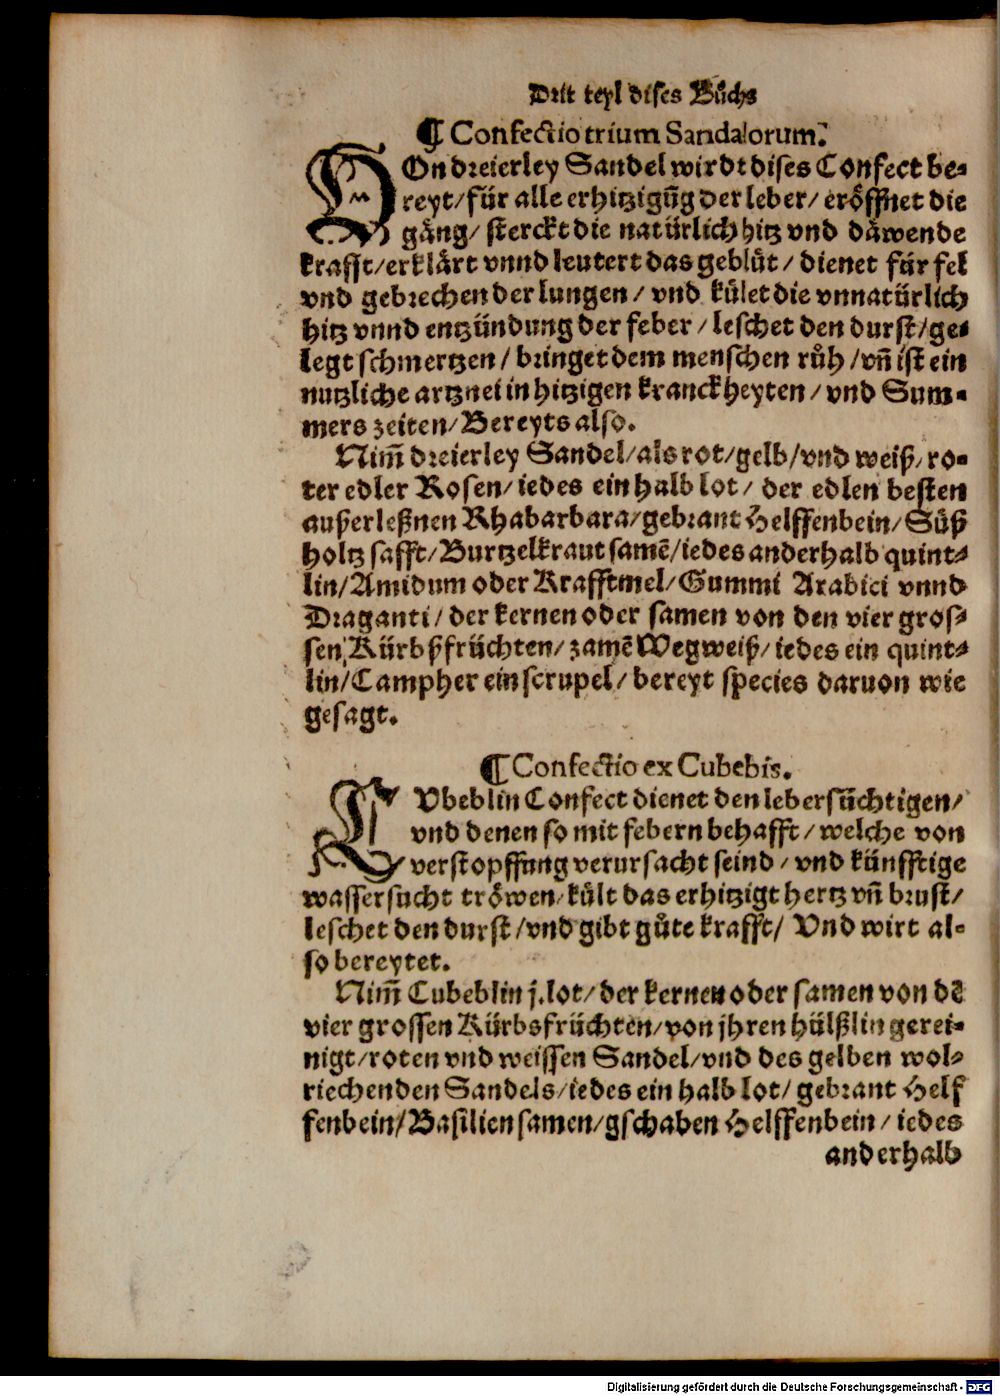 Drit teyl dises Bůchs
¶ Confectio trium Sandalorum.
VOn dreierley Sandel wirdt dises Confect be-
reyt/für alle erhitzigūg der leber/ eröffnet die
gäng/ sterckt die natürlich hitz vnd däwende
krafft/erklärt vnnd leutert das geblüt/ dienet für fel
vnd gebrechen der lungen/ vnd kület die vnnatürlich
hitz vnnd entzündung der feber/leschet den durst/ge-
legt schmertzen/ bringet dem menschen růh/vñ ist ein
nutzliche artznei in hitzigen kranckheyten/ vnd Sum-
mers zeiten/ Bereyts also.
Nim̄ dreierley Sandel/als rot/gelb/vnd weiß/ro-
ter edler Rosen/iedes ein halb lot/ der edlen besten
außerleßnen Rhabarbara/gebrant Helffenbein/Süß
holtz safft/Burtzelkraut samē/iedes anderhalb quint-
lin/Amidum oder Krafftmel/Gummi Arabici vnnd
Draganti/ der kernen oder samen von den vier gros-
sen Kürbßfrüchten/ zamē Wegweiß/iedes ein quint-
lin/Campher ein scrupel/ bereyt species daruon wie
gesagt.
¶ Confectio ex Cubebis.
KVbeblin Confect dienet den lebersüchtigen/
vnd denen so mit febern behafft/welche von
verstopffung verursacht seind/ vnd künfftige
wassersucht tröwen/kült das erhitzigt hertz vñ brust/
leschet den durst/vnd gibt gůte krafft/ Vnd wirt al-
so bereytet.
Nim̄ Cubeblin j.lot/der kernen oder samen von dē
vier grossen Kürbsfrüchten/von jhren hülßlin gerei-
nigt/roten vnd weissen Sandel/vnd des gelben wol-
riechenden Sandels/iedes ein halb lot/ gebrant Helf
fenbein/Basilien samen/gschaben Helffenbein/ iedes
anderhalb
Digitalisierung gefördert durch die Deutsche Forschungsgemeinschaft - DFG